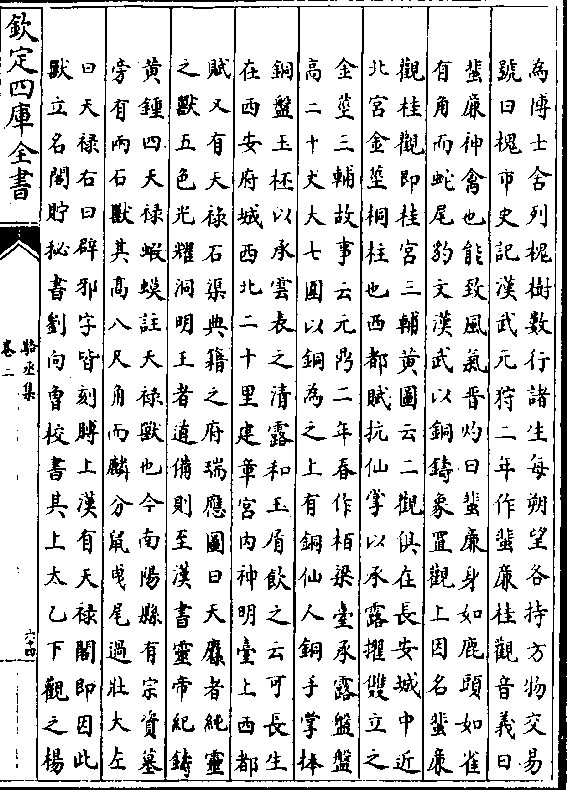 為博士舍列槐樹數行諸生每朔望各持方物交易
號曰槐市史記漢武元狩二年作蜚廉桂觀音義曰
蜚廉神禽也能致風氣晉灼曰蜚廉身如鹿頭如雀
有角而蛇尾豹文漢武以銅鑄象置觀上因名蜚廉
觀桂觀即桂宮三輔黃圖云二觀俱在長安城中近
北宮金莖桐柱也西都賦抗仙掌以承露擢雙立之
金莖三輔故事云元鼎二年春作栢梁臺承露盤盤
高二十丈大七圍以銅為之上有銅仙人銅手掌捧
銅盤玉杯以承雲表之清露和玉屑飲之云可長生
在西安府城西北二十里建章宮內神明臺上西都
賦又有天祿石渠典籍之府瑞應圖曰天麃者純靈
之獸五色光耀洞明王者道備則至漢書靈帝紀鑄
黃鍾四天祿蝦蟆註天祿獸也今南陽縣有宗資墓
旁有兩石獸其高八尺角而麟分鼠曵尾過壯大左
曰天祿右曰辟邪字皆刻膊上漢有天祿閣即因此
獸立名閣貯祕書劉向曹校書其上太乙下觀之楊
欽定四庫全書
駱丞集
卷二
六十四